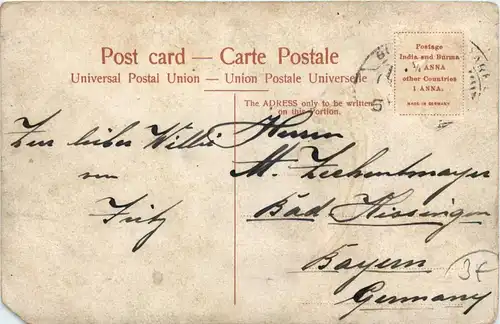 Post card — Carte Postale
Universal Postal Union — Union Postale Universelle
Postage
India and Burma
½ ANNA
other Countries
1 ANNA.
MADE IN GERMANY
The ADRESS only to be written
on this Portion.
lieber Willi
von
Fritz
Herrn
M. Zechentmayer
Bad Kissingen
Bayern
Germany
3€